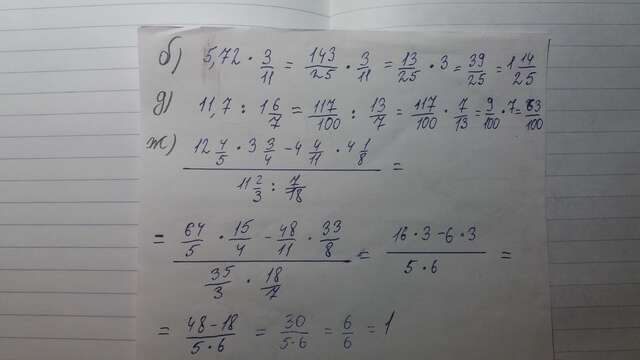 б) 5,72 · 3/11 = 143/25 · 3/11 = 13/25 · 3 = 39/25 = 1 14/25
д) 11,7 : 1 6/7 = 117/100 : 13/7 = 117/100 · 7/13 = 9/100 · 7 = 63/100
ж) (12 4/5 · 3 3/4 − 4 4/11 · 4 1/8) / (11 2/3 : 7/18) =
= (64/5 · 15/4 − 48/11 · 33/8) / (35/3 · 18/7) = (16 · 3 − 6 · 3) / (5 · 6) =
= (48 − 18) / (5 · 6) = 30/(5·6) = 6/6 = 1